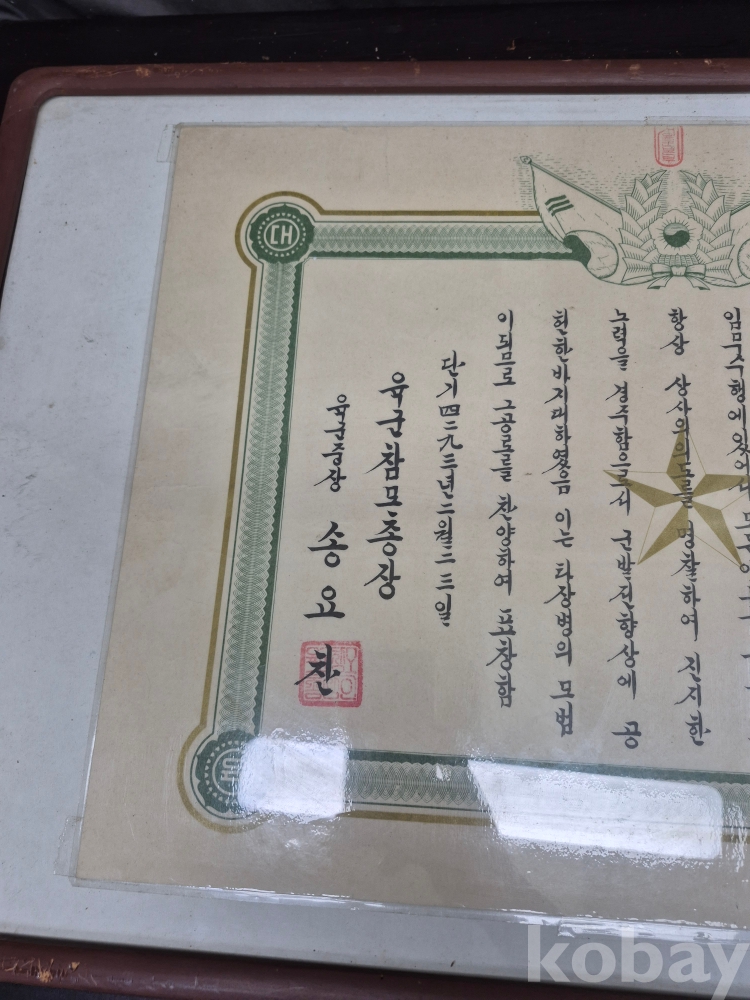 대
임무수행에있어
항상 상사의의도를 명찰하여 진지한
노력을 경주함으로서 군발전향상에 공
헌한바지대하였음 이는 타장병의 모범
이되므로 그공로를 찬양하여 표창함
단기四二九三년二월二三일
육군참모총장
육군중장 송요찬
kobay